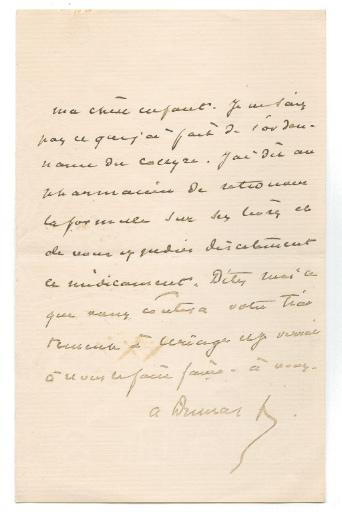 ma chère enfant. Je ne sais
pas ce que j'ai fait de l'ordon-
nance du collyre. J'ai dit au
pharmacien de retrouver
la formule sur ses livres et
de vous expédier directement
ce médicament. Dites moi ce
que vous coutera votre trai
tement à Uriage et je verrai
à vous le faire faire. à vous.
A Dumas f.